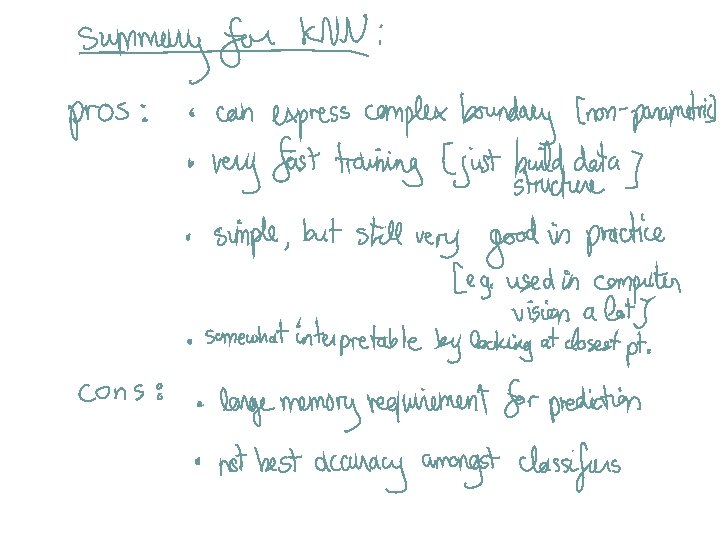 Summary for kNN:
pros: • can express complex boundary [non-parametric]
• very fast training [just build data
structure]
• simple, but still very good in practice
[e.g. used in computer
vision a lot]
• somewhat interpretable by looking at closest pt.
cons: • large memory requirement for prediction
• not best accuracy amongst classifiers